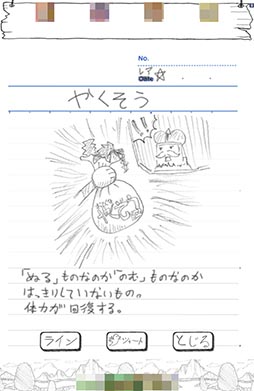 No.
レア
Date ☆ . .
やくそう
やくそう
「ぬる」ものなのか「のむ」ものなのか
は、きりしていないもの。
体力が回復する。
ライン ショート とじる